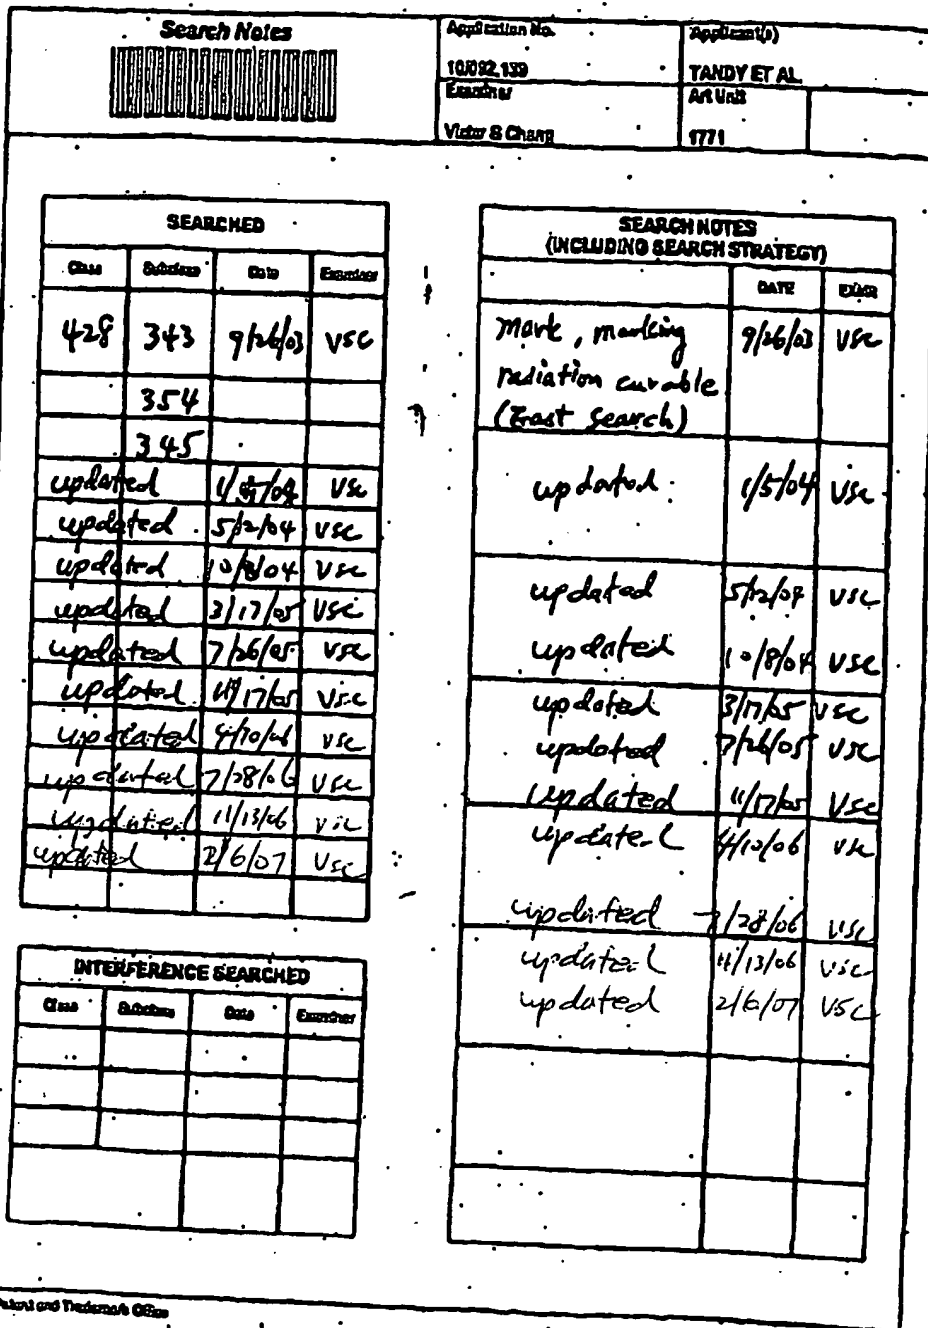 Search Notes
Application No.
Applicant(s)
10/092,139
TANDY ET AL.
Examiner
Art Unit
Victor S Chang
1771
SEARCHED
Class Subclass Date Examiner
428 343 9/26/03 VSC
354
345
updated 1/5/04 VSC
updated 5/12/04 VSC
updated 10/8/04 VSC
updated 3/17/05 VSC
updated 7/26/05 VSC
updated 11/17/05 VSC
updated 4/10/06 VSC
updated 7/28/06 VSC
updated 11/13/06 VSC
updated 2/6/07 VSC
INTERFERENCE SEARCHED
Class Subclass Date Examiner
SEARCH NOTES
(INCLUDING SEARCH STRATEGY)
DATE EXMR
Mark, marking 9/26/03 VSC
radiation curable
(East Search)
updated 1/5/04 VSC
updated 5/12/04 VSC
updated 10/8/04 VSC
updated 3/17/05 VSC
updated 7/26/05 VSC
updated 11/17/05 VSC
updated 4/10/06 VSC
updated 7/28/06 VSC
updated 11/13/06 VSC
updated 2/6/07 VSC
Patent and Trademark Office